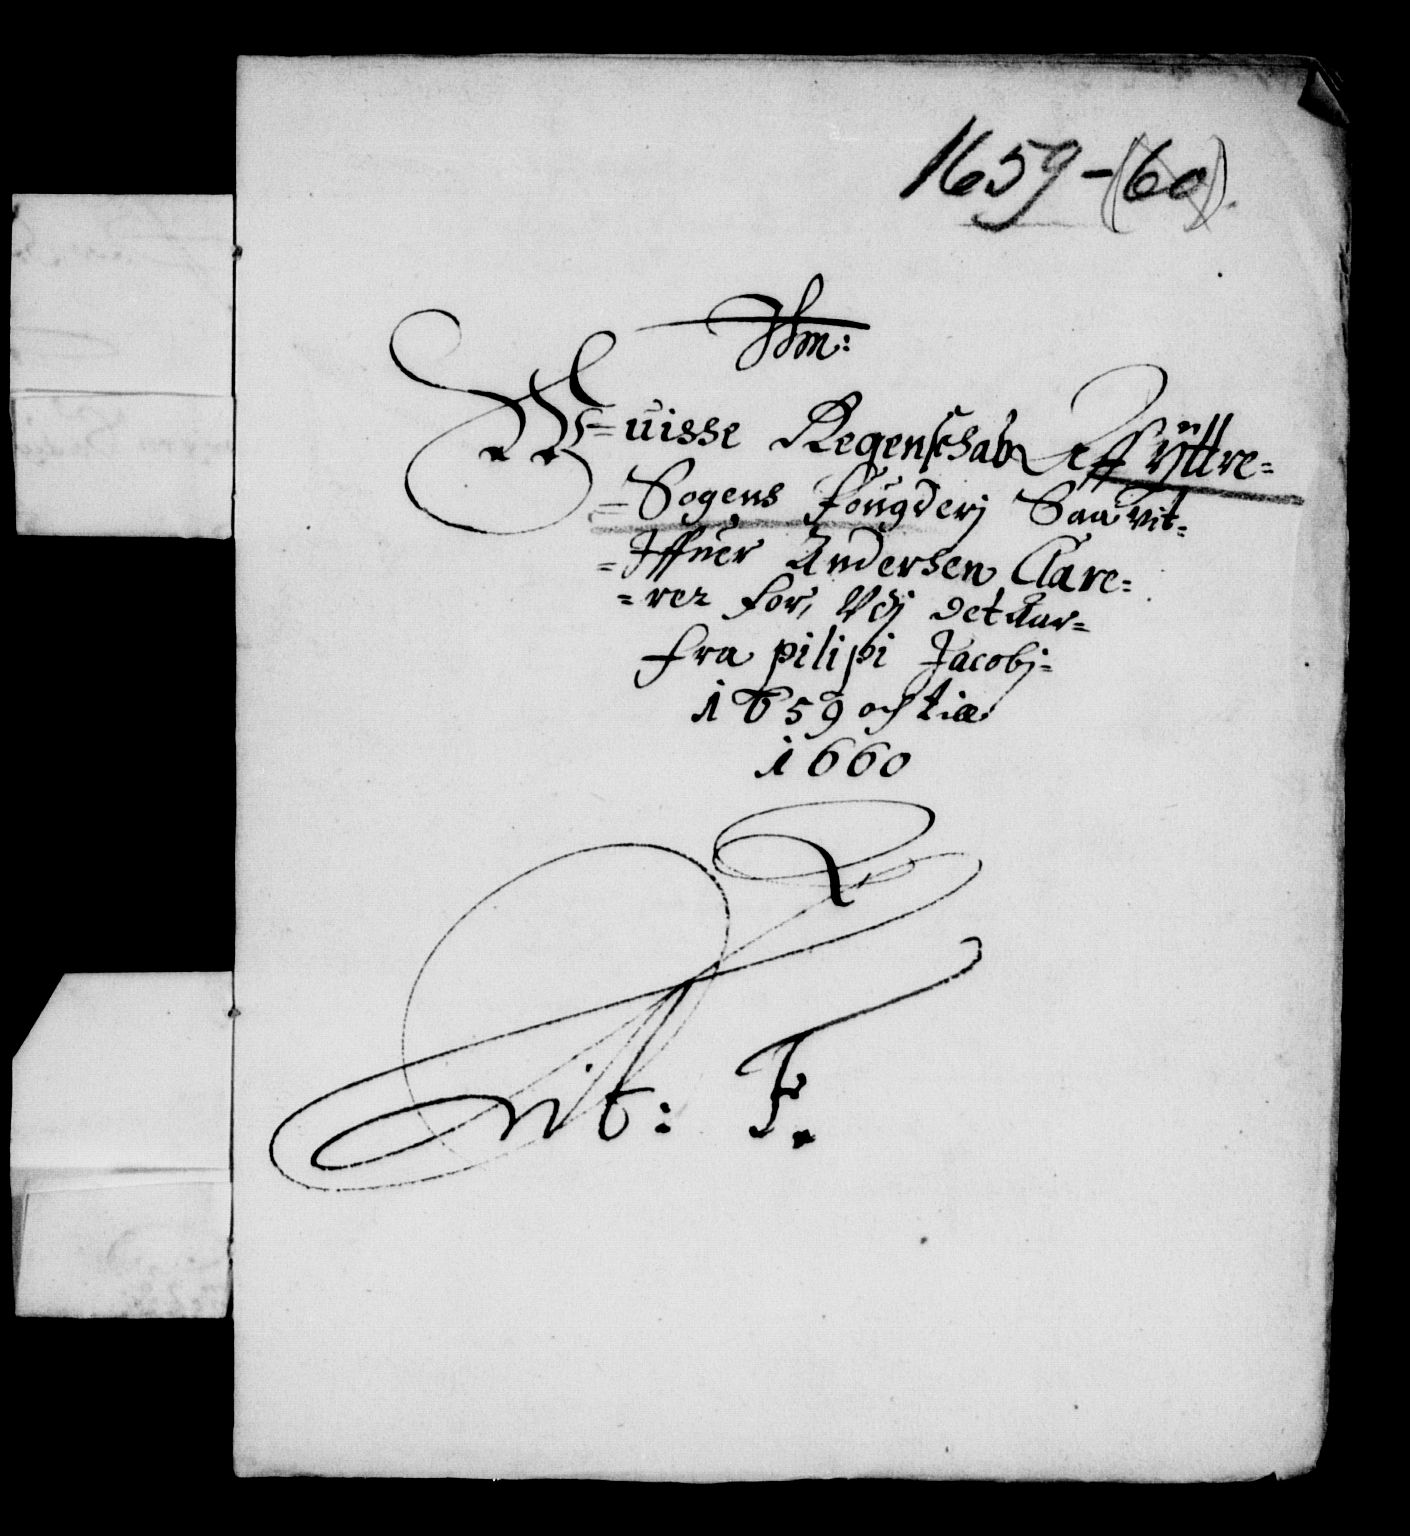 1659-(60)
Wuisse Regenschab Aff Yttre=
=Sogens Fougderj Saa vit=
=Iffuer Andersen Clare=
=rer for, Vdj det Aar=
fra pilipi Jacobj=
1659 och till
1660
Lit: F.